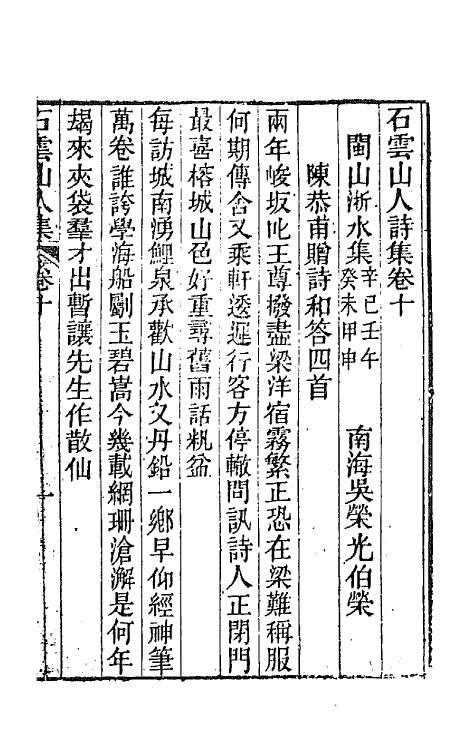 石雲山人詩集卷十
閩山浙水集辛巳壬午癸未甲申　南海吳榮光伯榮
陳恭甫贈詩和答四首
兩年峻坂叱王尊撥盡梁洋宿霧繁正恐在梁難稱服
何期傳舍又乘軒逶遲行客方停轍問訊詩人正閉門
最喜榕城山色好重尋舊雨話瓻盆
每訪城南湧鯉泉承歡山水又丹鉛一鄉早仰經神筆
萬卷誰誇學海船劚玉碧嵩今幾載網珊滄澥是何年
朅來夾袋羣才出暫讓先生作散仙
石雲山人集　卷十　一